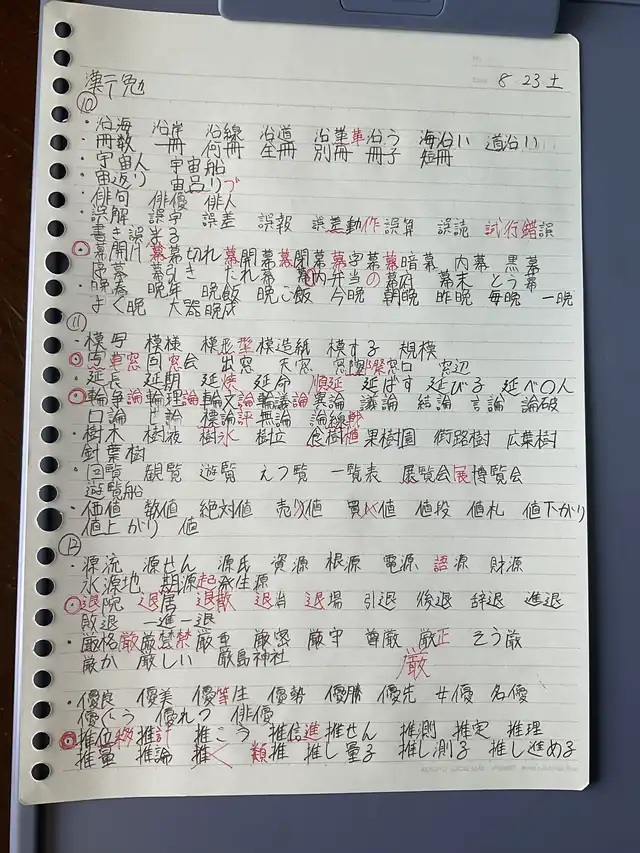 8 23 土
漢字勉
⑩
・沿海 沿岸 沿線 沿道 沿革 沿う 海沿い 道沿い
・冊数 一冊 何冊 全冊 別冊 冊子 短冊
・宇宙人 宇宙船
・宙返り 宙ぶらり
・俳句 俳優 俳人
・誤解 誤字 誤差 誤報 誤動作 誤算 誤読 試行錯誤
書き誤まる
・幕開け 幕切れ 幕開 幕閉 幕 字幕 暗幕 内幕 黒幕
序幕 幕引き たれ幕 幕内弁当の 幕府 幕末 とう幕
・晩春 晩年 晩飯 晩ご飯 今晩 朝晩 昨晩 毎晩 一晩
まく晩 大器晩成
⑪
・模写 模様 模型 模造紙 模する 規模
同窓会 出窓 天窓 窓際 窓口 窓辺
・延長 延期 延焼 延命 順延 延ばす 延びる 延べ〇人
・論争 論理 論文 論議 異論 議論 結論 言論 論破
口論 討論 評論 無論
・樹木 樹液 樹氷 樹立 植樹 果樹園 街路樹 広葉樹
針葉樹
・回覧 観覧 遊覧 えつ覧 一覧表 展覧会 博覧会
遊覧船
・価値 数値 絶対値 売り値 買い値 値段 値札 値下がり
値上がり 値
⑫
・源流 源せん 源氏 資源 根源 電源 語源 財源
水源地 起源 発生源
・退院 退居 退散 退治 退場 引退 後退 辞退 進退
敗退 一進一退
・厳格 厳禁 厳重 厳密 厳守 尊厳 厳正 そう厳
厳か 厳しい 厳島神社
厳
・優良 優美 優等生 優勢 優勝 優先 女優 名優
優ぐう 優れつ 俳優
・推位 推計 推こう 推進 推せん 推測 推定 推理
推量 推論 類推 推し量る 推し測る 推し進める